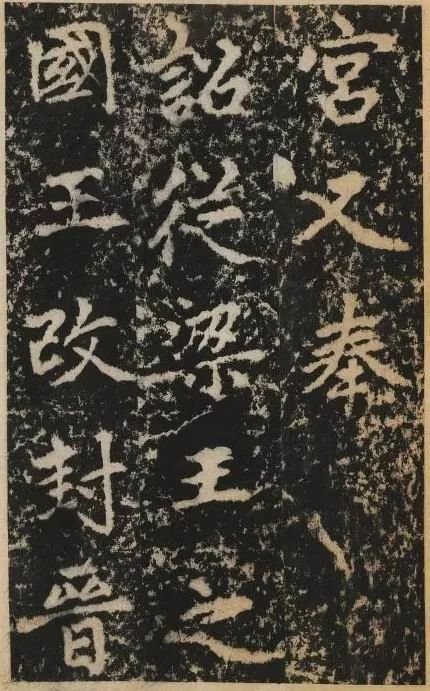 宮又奉
詔從梁王之
國王改封晉